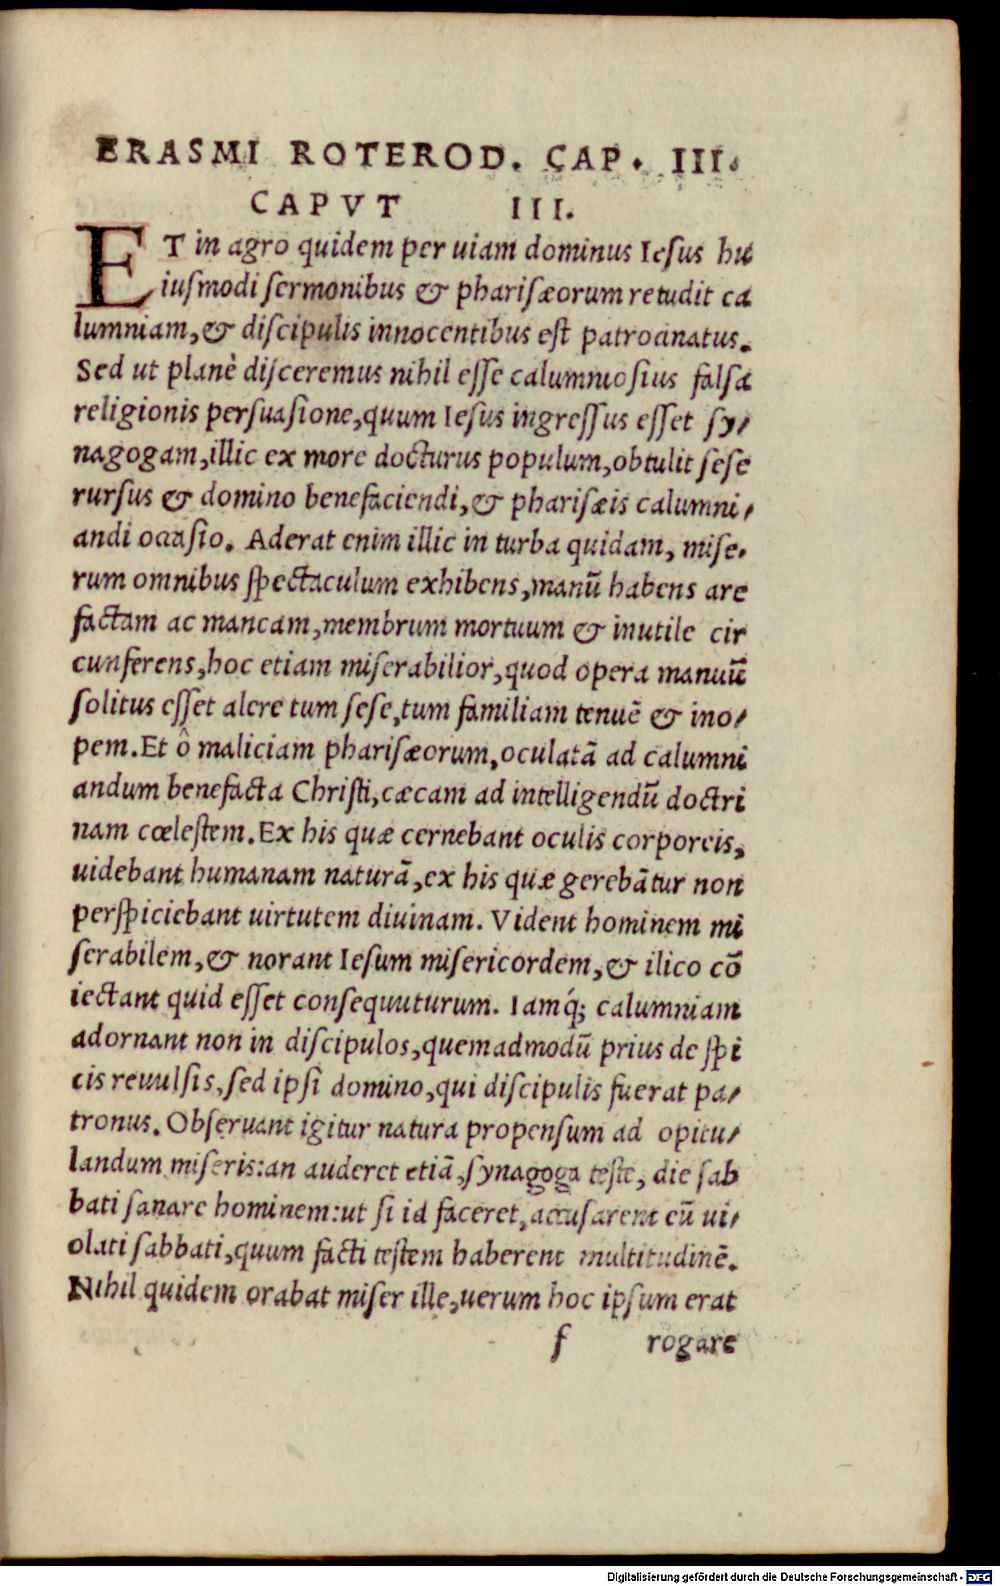 ERASMI ROTEROD. CAP. III.
CAPVT III.
ET in agro quidem per uiam dominus Iesus hu
iusmodi sermonibus & pharisæorum retudit ca
lumniam, & discipulis innocentibus est patrocinatus.
Sed ut planè disceremus nihil esse calumniosius falsa
religionis persuasione, quum Iesus ingressus esset sy/
nagogam, illic ex more docturus populum, obtulit sese
rursus & domino benefaciendi, & pharisæis calumni/
andi occasio. Aderat enim illic in turba quidam, mise/
rum omnibus spectaculum exhibens, manū habens are
factam ac mancam, membrum mortuum & inutile cir
cunferens, hoc etiam miserabilior, quod opera manuū
solitus esset alere tum sese, tum familiam tenuē & ino/
pem. Et ô maliciam pharisæorum, oculatā ad calumni
andum benefacta Christi, cæcam ad intelligendū doctri
nam cœlestem. Ex his quæ cernebant oculis corporeis,
uidebant humanam naturā, ex his quæ gerebātur non
perspiciebant uirtutem diuinam. Vident hominem mi
serabilem, & norant Iesum misericordem, & ilico cō
iectant quid esset consequuturum. Iamq́; calumniam
adornant non in discipulos, quemadmodū prius de spi
cis reuulsis, sed ipsi domino, qui discipulis fuerat pa/
tronus. Obseruant igitur natura propensum ad opitu/
landum miseris: an auderet etiā, synagoga teste, die sab
bati sanare hominem: ut si id faceret, accusarent eū ui/
olati sabbati, quum facti testem haberent multitudinē.
Nihil quidem orabat miser ille, uerum hoc ipsum erat
f rogare
Digitalisierung gefördert durch die Deutsche Forschungsgemeinschaft - DFG